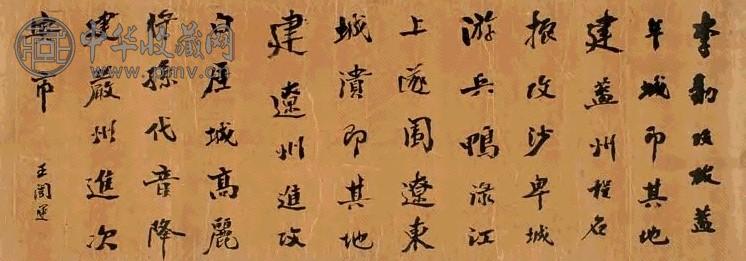 李勣攻拔蓋
牟城即其地
建蓋州程名
振攻沙卑城
游兵鴨淥江
上遂圍遼東
城潰即其地
建遼州進攻
白厓城高麗
孫代音降
建嚴州進次
安市
王闓運
中华收藏网